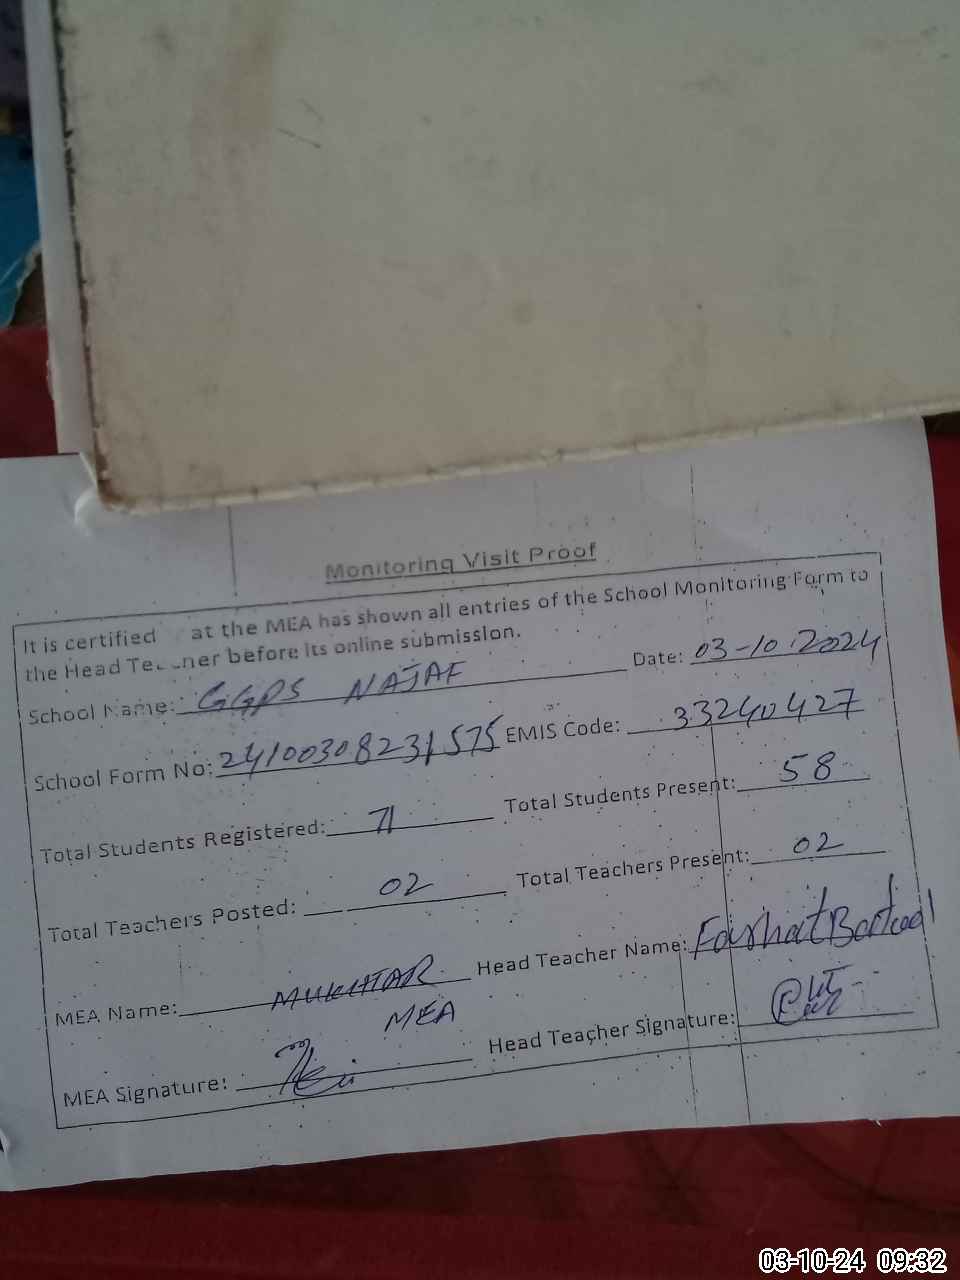 Monitoring Visit Proof
It is certified at the MEA has shown all entries of the School Monitoring Form to
the Head Te ner before its online submission.
School Name: GGPS NAJAF Date: 03-10-2024
School Form No: 24100308231575 EMIS Code: 33240427
Total Students Registered: 71 Total Students Present: 58
Total Teachers Posted: 02 Total Teachers Present: 02
MEA Name: MUKHTAR Head Teacher Name: Farhat
MEA
MEA Signature: Head Teacher Signature:
03-10-24 09:32